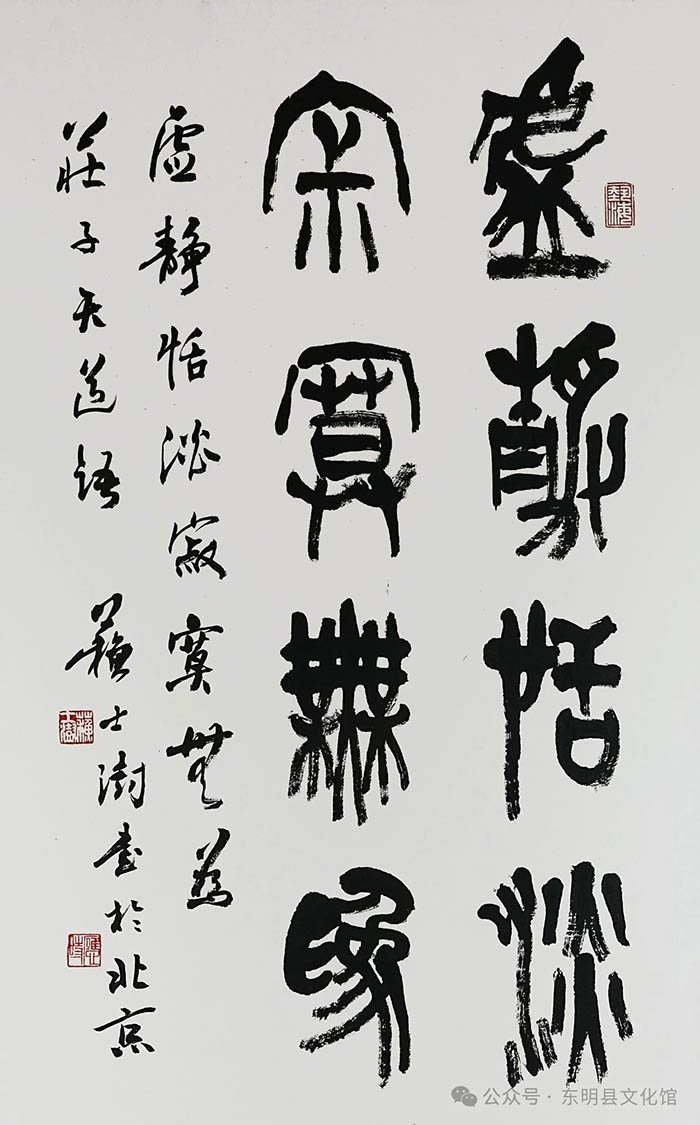 虚静恬淡
宗寞无为
虚静恬淡寂寞无为
莊子天道语
蘇士澍书於北京
公众号·东明县文化馆